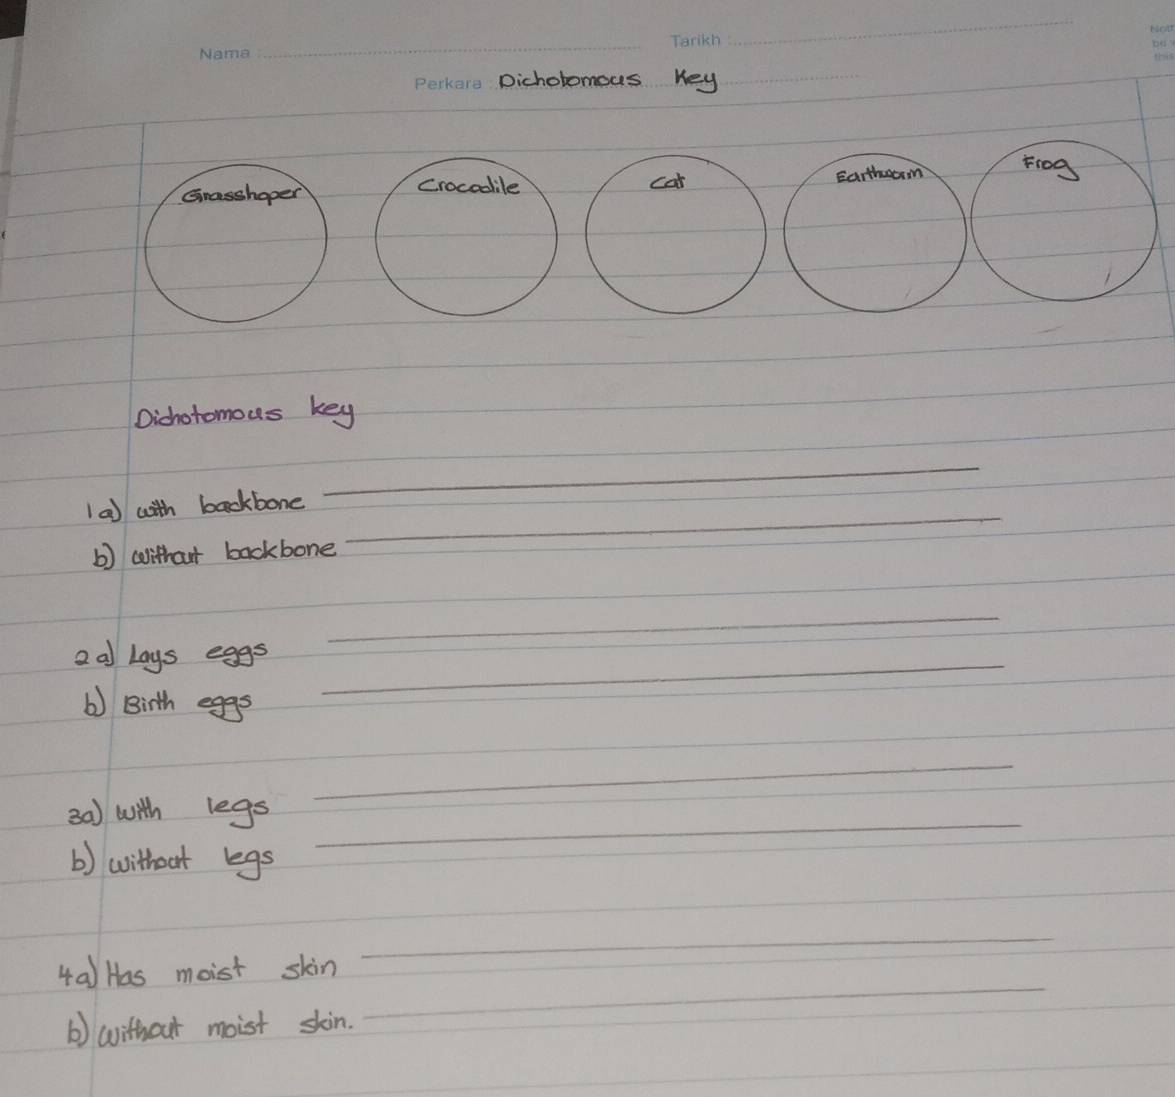 Nama : Tarikh :
Perkara : Dichotomous Key
Grasshoper Crocodile Cat Earthworm Frog
Dichotomous key
1a) with backbone
b) without backbone
2a) Lays eggs
b) Birth eggs
3a) with legs
b) without legs
4a) Has moist skin
b) without moist skin.